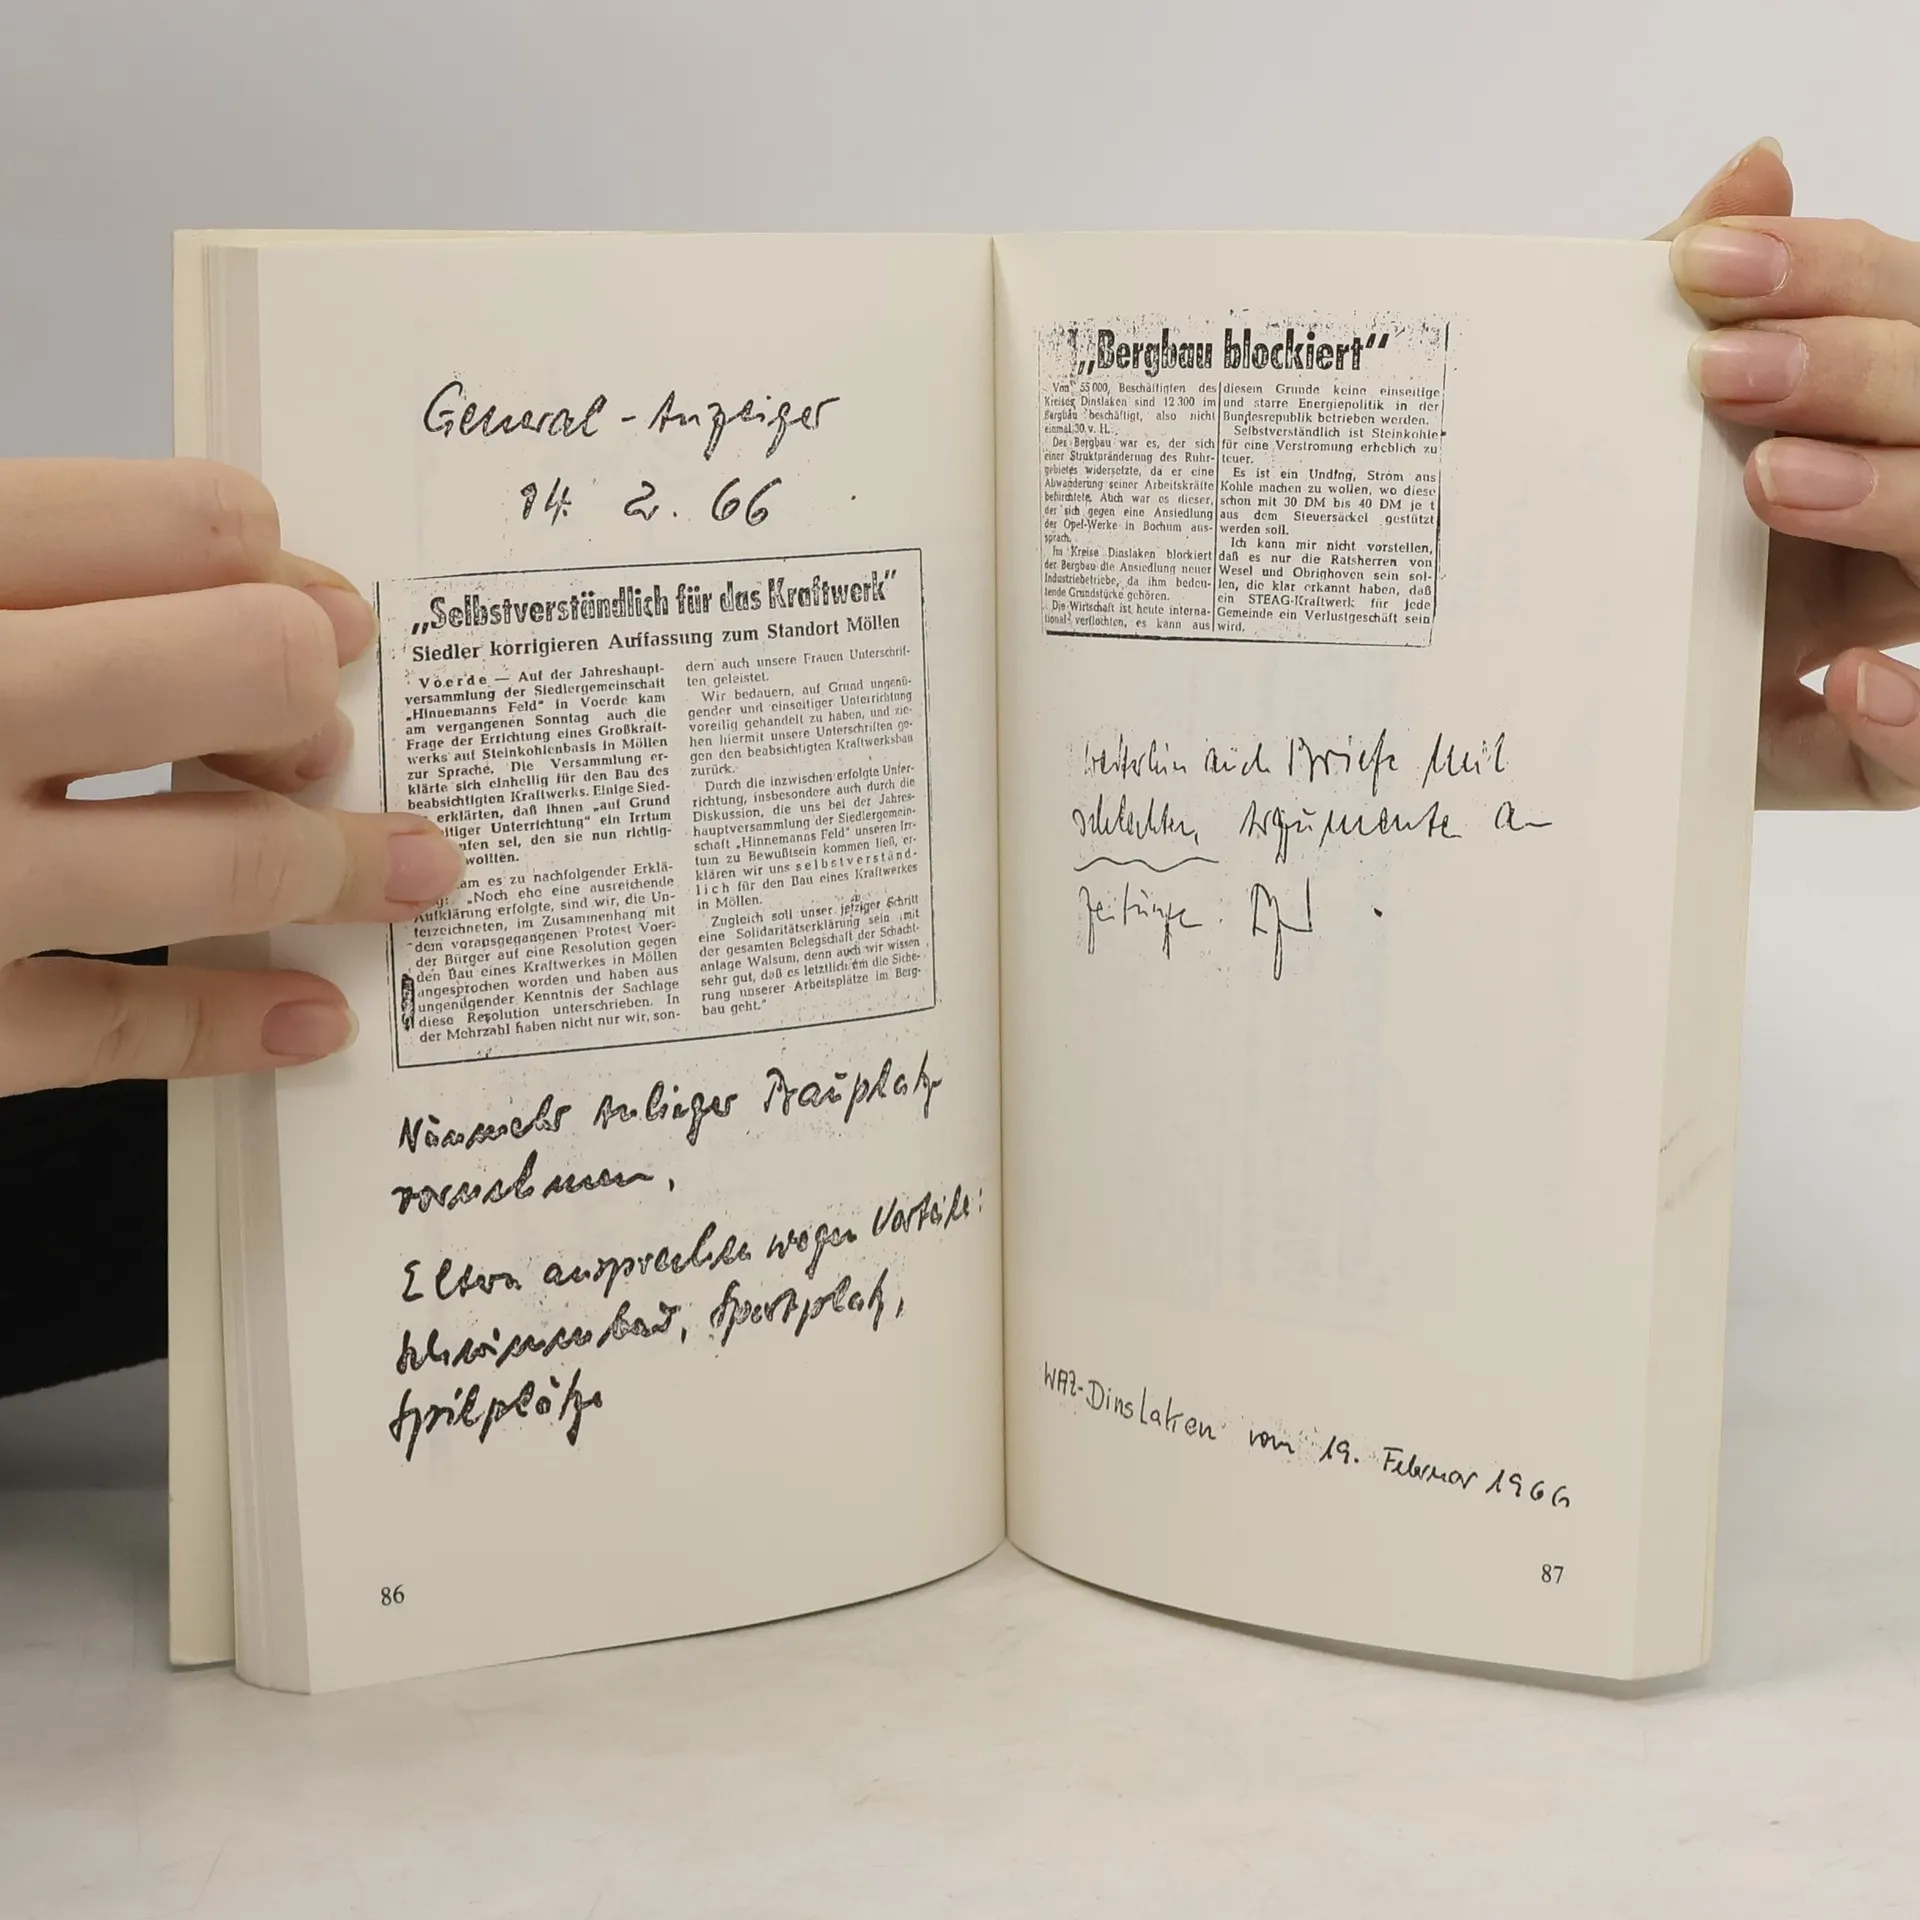 General-Anzeiger
14. 2. 66
„Selbstverständlich für das Kraftwerk"
Siedler korrigieren Auffassung zum Standort Möllen
Voerde — Auf der Jahreshaupt-
versammlung der Siedlergemeinschaft
„Hinnemanns Feld" in Voerde kam
am vergangenen Sonntag auch die
Frage der Errichtung eines Großkraft-
werks auf Steinkohlenbasis in Möllen
zur Sprache. Die Versammlung er-
klärte sich einhellig für den Bau des
beabsichtigten Kraftwerks. Einige Sied-
erklärten, daß ihnen „auf Grund
eitiger Unterrichtung" ein Irrtum
fen sei, den sie nun richtig-
wollten.
am es zu nachfolgender Erklä-
g: „Noch ehe eine ausreichende
Aufklärung erfolgte, sind wir, die Un-
terzeichneten, im Zusammenhang mit
dem vorausgegangenen Protest Voer-
der Bürger auf eine Resolution gegen
den Bau eines Kraftwerkes in Möllen
angesprochen worden und haben aus
ungenügender Kenntnis der Sachlage
diese Resolution unterschrieben. In
der Mehrzahl haben nicht nur wir, son-
dern auch unsere Frauen Unterschrif-
ten geleistet.
Wir bedauern, auf Grund ungenü-
gender und einseitiger Unterrichtung
voreilig gehandelt zu haben, und zie-
hen hiermit unsere Unterschriften ge-
gen den beabsichtigten Kraftwerksbau
zurück.
Durch die inzwischen erfolgte Unter-
richtung, insbesondere auch durch die
Diskussion, die uns bei der Jahres-
hauptversammlung der Siedlergemein-
schaft „Hinnemanns Feld" unseren Irr-
tum zu Bewußtsein kommen ließ, er-
klären wir uns selbstverständ-
lich für den Bau eines Kraftwerkes
in Möllen.
Zugleich soll unser jetziger Schritt
eine Solidaritätserklärung sein mit
der gesamten Belegschaft der Schacht-
anlage Walsum, denn auch wir wissen
sehr gut, daß es letztlich um die Siche-
rung unserer Arbeitsplätze im Berg-
bau geht."
Nunmehr Anlieger Bauplatz
vornehmen,
Eltern ansprechen wegen Vorteile:
Schwimmbad, Sportplatz,
Spielplätze
86
„Bergbau blockiert"
Von 55 000 Beschäftigten des
Kreises Dinslaken sind 12 300 im
Bergbau beschäftigt, also nicht
einmal 30 v. H.
Der Bergbau war es, der sich
einer Strukturänderung des Ruhr-
gebietes widersetzte, da er eine
Abwanderung seiner Arbeitskräfte
befürchtete. Auch war es dieser,
der sich gegen eine Ansiedlung
der Opel-Werke in Bochum aus-
sprach.
Im Kreise Dinslaken blockiert
der Bergbau die Ansiedlung neuer
Industriebetriebe, da ihm bedeu-
tende Grundstücke gehören.
Die Wirtschaft ist heute interna-
tional verflochten, es kann aus
diesem Grunde keine einseitige
und starre Energiepolitik in der
Bundesrepublik betrieben werden.
Selbstverständlich ist Steinkohle
für eine Verstromung erheblich zu
teuer.
Es ist ein Unding, Strom aus
Kohle machen zu wollen, wo diese
schon mit 30 DM bis 40 DM je t
aus dem Steuersäckel gestützt
werden soll.
Ich kann mir nicht vorstellen,
daß es nur die Ratsherren von
Wesel und Obrighoven sein sol-
len, die klar erkannt haben, daß
ein STEAG-Kraftwerk für jede
Gemeinde ein Verlustgeschäft sein
wird.
weiterhin auch Briefe mit
schlechten Argumente an
Zeitunge.
WAZ-Dinslaken vom 19. Februar 1966
87